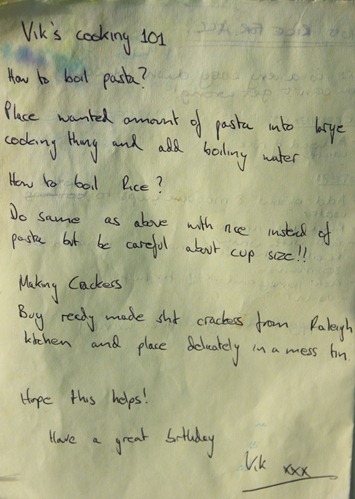 Vik's cooking 101
How to boil pasta?
Place wanted amount of pasta into large
cooking thing and add boiling water
How to boil Rice?
Do same as above with rice instead of
pasta but be careful about cup size!!
Making Crackers
Buy ready made shit crackers from Raleigh
kitchen and place delicately in a mess tin.
Hope this helps!
Have a great birthday
Vik xxx